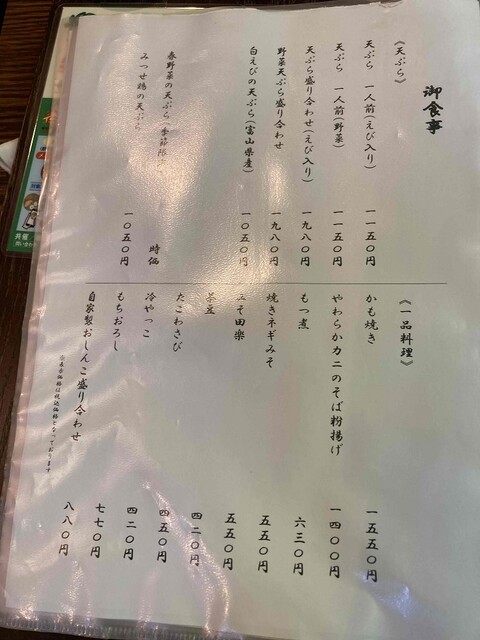 御食事
《天ぷら》
天ぷら 一人前(えび入り) 一一五〇円
天ぷら 一人前(野菜) 一一五〇円
天ぷら盛り合わせ(えび入り) 一九八〇円
野菜天ぷら盛り合わせ 一九八〇円
白えびの天ぷら(富山県産) 一〇五〇円
春野菜の天ぷら 時価
みつせ鶏の天ぷら 一〇五〇円
《一品料理》
かも焼き 一五五〇円
やわらかカニのそば粉揚げ 一四〇〇円
もつ煮 六三〇円
焼きネギみそ 五五〇円
みそ田楽 五五〇円
茶豆 四二〇円
たこわさび 四五〇円
冷やっこ 四二〇円
もちおろし 七七〇円
自家製おしんこ盛り合わせ 八八〇円
表示価格は税込価格となっております